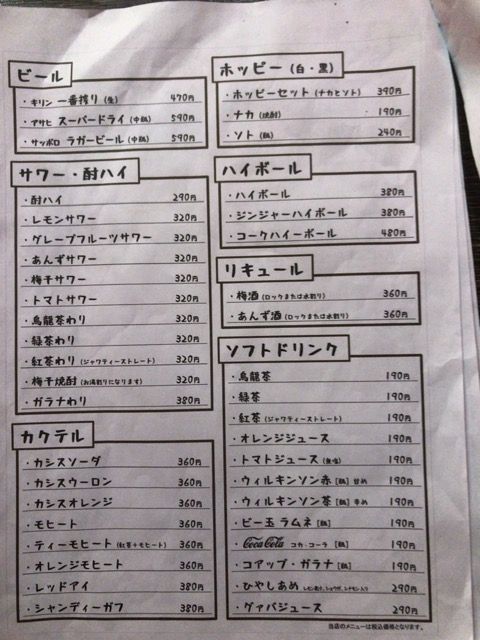 ビール
・キリン 一番搾り (生) 470円
・アサヒ スーパードライ (中瓶) 590円
・サッポロ ラガービール (中瓶) 590円
サワー・酎ハイ
・酎ハイ 290円
・レモンサワー 320円
・グレープフルーツサワー 320円
・あんずサワー 320円
・梅干サワー 320円
・トマトサワー 320円
・烏龍茶わり 320円
・緑茶わり 320円
・紅茶わり (ジャワティーストレート) 320円
・梅干焼酎 (お湯割りになります) 320円
・ガラナわり 380円
カクテル
・カシスソーダ 360円
・カシスウーロン 360円
・カシスオレンジ 360円
・モヒート 360円
・ティーモヒート (紅茶+モヒート) 360円
・オレンジモヒート 360円
・レッドアイ 380円
・シャンディーガフ 380円
ホッピー (白・黒)
・ホッピーセット (ナカとソト) 390円
・ナカ (焼酎) 190円
・ソト (瓶) 240円
ハイボール
・ハイボール 380円
・ジンジャーハイボール 380円
・コークハイーボール 480円
リキュール
・梅酒 (ロックまたは水割り) 360円
・あんず酒 (ロックまたは水割り) 360円
ソフトドリンク
・烏龍茶 190円
・緑茶 190円
・紅茶 (ジャワティーストレート) 190円
・オレンジジュース 190円
・トマトジュース (食塩) 190円
・ウィルキンソン赤 [瓶] 甘め 190円
・ウィルキンソン茶 [瓶] 辛め 190円
・ビー玉 ラムネ [瓶] 190円
・Coca-Cola コカ・コーラ [瓶] 190円
・コアップ・ガラナ [瓶] 190円
・ひやしあめ 290円
・グァバジュース 290円
当店のメニューは税込価格となります。